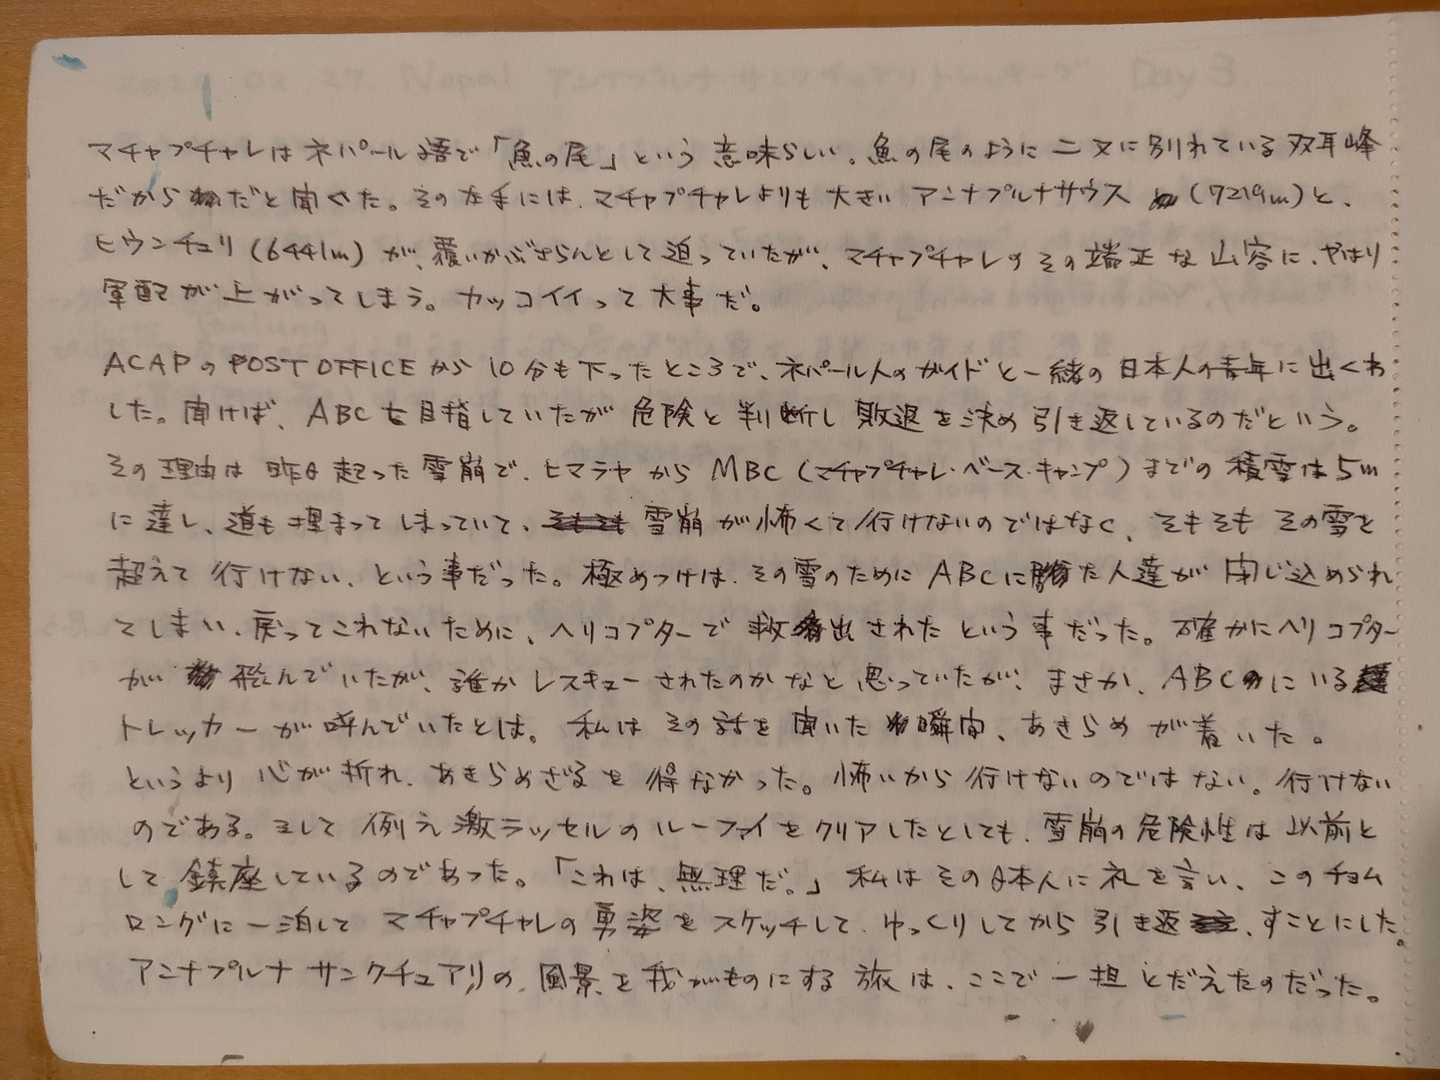 マチャプチャレはネパール語で「魚の尾」という意味らしい。魚の尾のように二又に別れている双耳峰
だからだと聞いた。その左手には、マチャプチャレよりも大きいアンナプルナサウス(7219m)と、
ヒウンチュリ(6441m)が、覆いかぶさらんとして迫っていたが、マチャプチャレのその端正な山容に、やはり
軍配が上がってしまう。カッコイイって大事だ。
ACAPのPOST OFFICEから10分も下ったところで、ネパール人のガイドと一緒の日本人の青年に出くわ
した。聞けば、ABCを目指していたが危険と判断し敗退を決め引き返しているのだという。
その理由は昨日起った雪崩で、ヒマラヤからMBC(マチャプチャレ・ベース・キャンプ)までの積雪は5m
に達し、道も埋まってしまっていて、雪崩が怖くて行けないのではなく、そもそもその雪を
超えて行けない、という事だった。極めつけは、その雪のためにABCに居た人達が閉じ込められ
てしまい、戻ってこれないために、ヘリコプターで救出されたという事だった。確かにヘリコプター
が飛んでいたが、誰かレスキューされたのかなと思っていたが、まさか、ABCにいる
トレッカーが呼んでいたとは。私はその話を聞いた瞬間、あきらめが着いた。
というより心が折れ、あきらめざるを得なかった。怖いから行けないのではない。行けない
のである。そして例え激ラッセルのルーファイをクリアしたとしても、雪崩の危険性は以前と
して鎮座しているのであった。「これは、無理だ。」私はその日本人に礼を言い、このチョム
ロングに一泊してマチャプチャレの勇姿をスケッチして、ゆっくりしてから引き返すことにした。
アンナプルナサンクチュアリの風景を我がものにする旅は、ここで一担とだえたのだった。